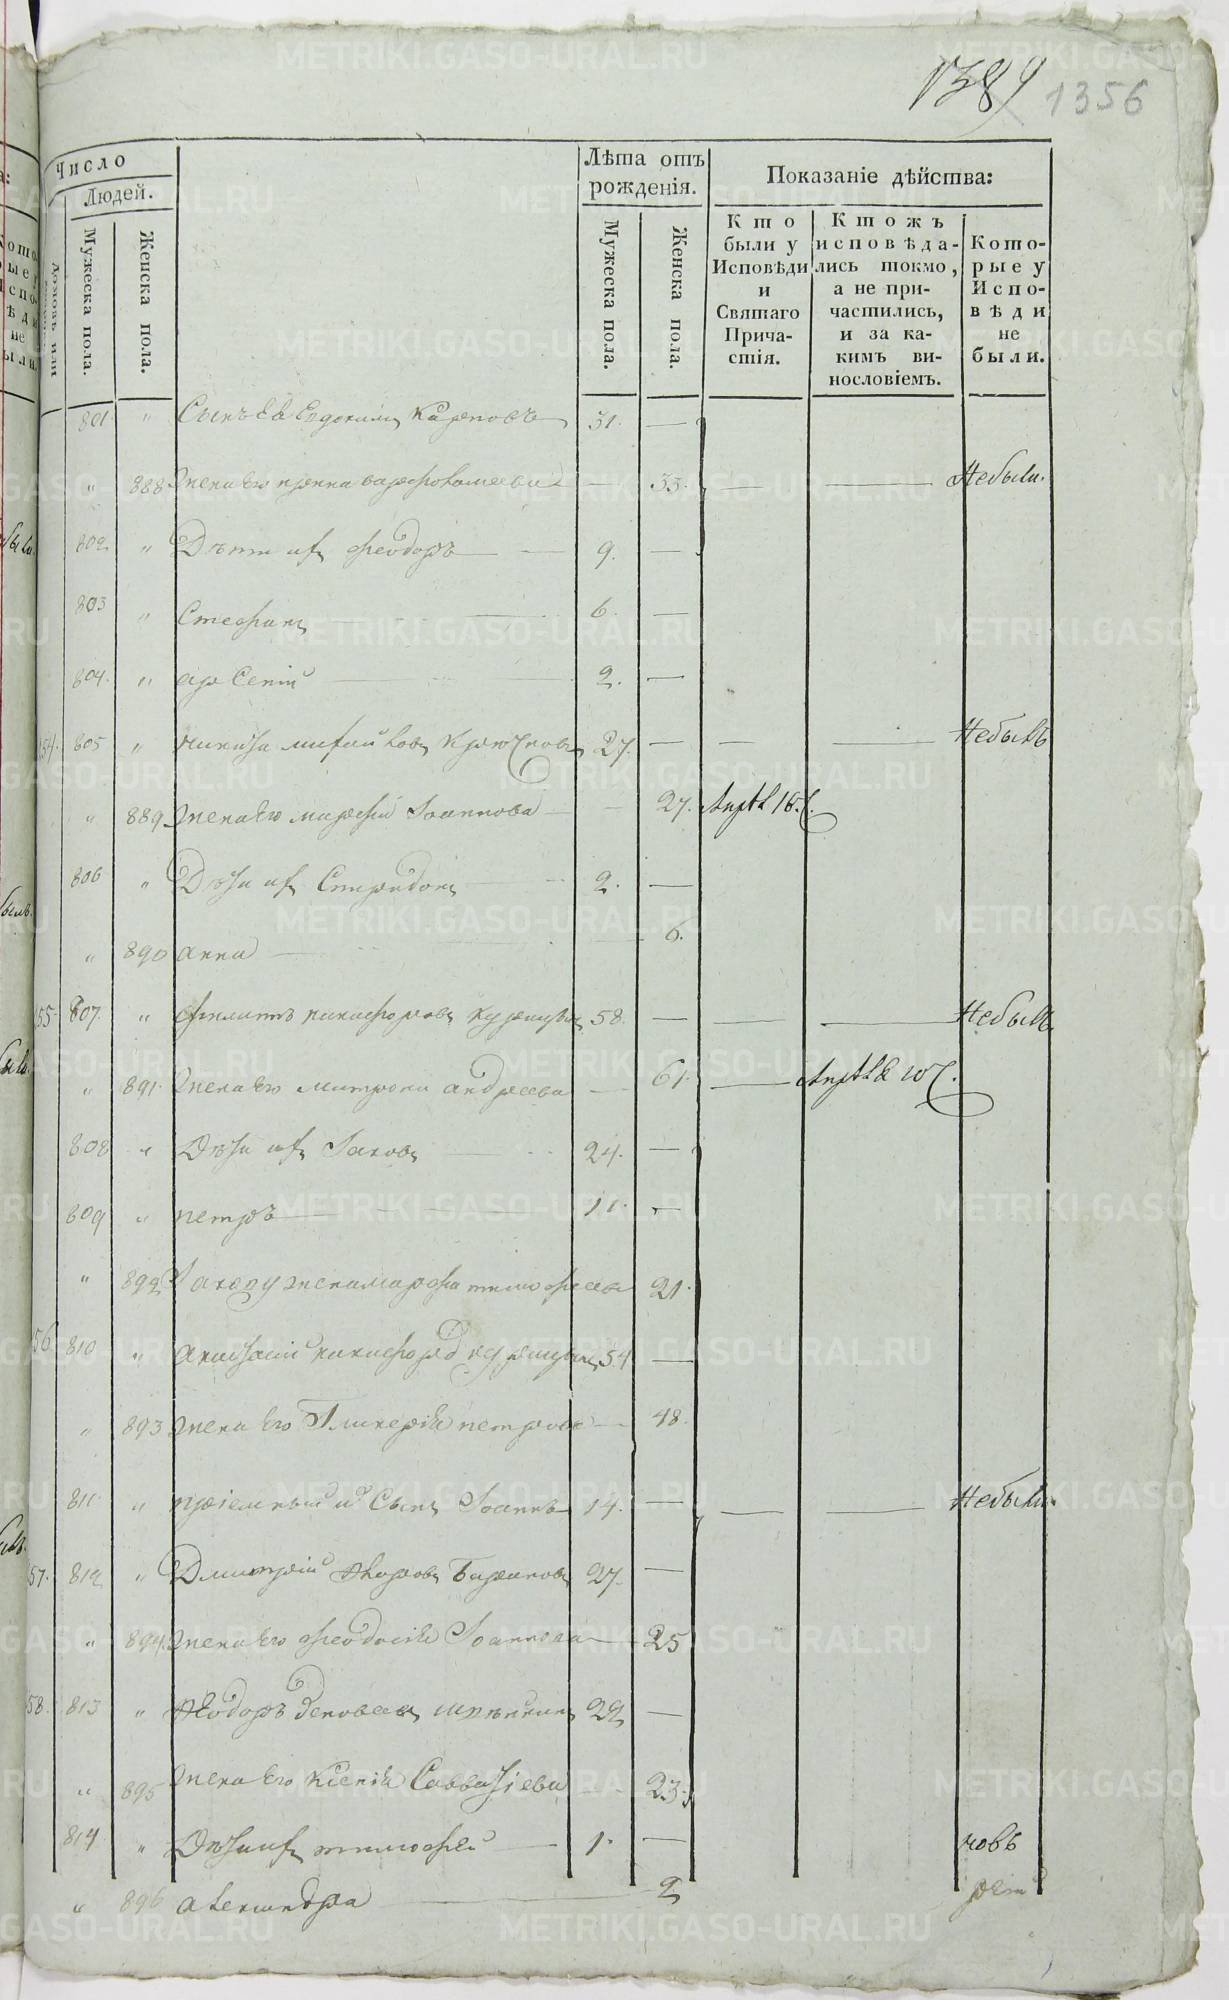 1389 1356
Число
Людей.
Мужеска пола.
Женска пола.
Лѣта отъ
рожденія.
Мужеска пола.
Женска пола.
Показаніе дѣйства:
Кто
были у
Исповѣди
и
Святаго
Прича-
стія.
Ктожъ
исповѣда-
лись токмо,
а не при-
частились,
и за ка-
кимъ ви-
нословіемъ.
Кото-
рые у
Испо-
вѣди
не
были.
801 " Сынъ Евдокимъ Карповъ 31. —
" 888 Жена Его — 33. — — Небыли.
802 " Дѣти ихъ Ѳеодоръ — 9. —
803 " Стефанъ — 6. —
804. " арсеній — 2. —
154. 805 " Михайловъ Крючковъ 27. — — — Небылъ
" 889 Жена Его Іоаннова — 27. Апрѣл 16.
806 " Дѣти ихъ Спиридонъ — 2. —
" 890 анна — 6.
155 807. " Филиппъ никифоровъ 58. — — — Небылъ
" 891. Жена Его матрона андреева — 61. — Апрѣля 10
808 " Дѣти ихъ Іаковъ — 24. —
809 " петръ — 11. —
" 892 Іакову жена марфа тимофеева 21.
156 810 " никифоровъ 54 —
" 893 Жена Его Гликерія петрова — 48.
811 " пріемный Сынъ Іоаннъ 14. — — — Небыли.
157. 812 " Димитрій Барановъ 27. —
" 894. Жена Его Ѳеодосія Іоаннова — 25
158. 813 " Ѳеодоръ 22 —
" 895 Жена Его Ксенія Савватіева — 23.
814 " Дѣти ихъ тимофей — 1. — човъ
" 896 александра — 2
METRIKI.GASO-URAL.RU